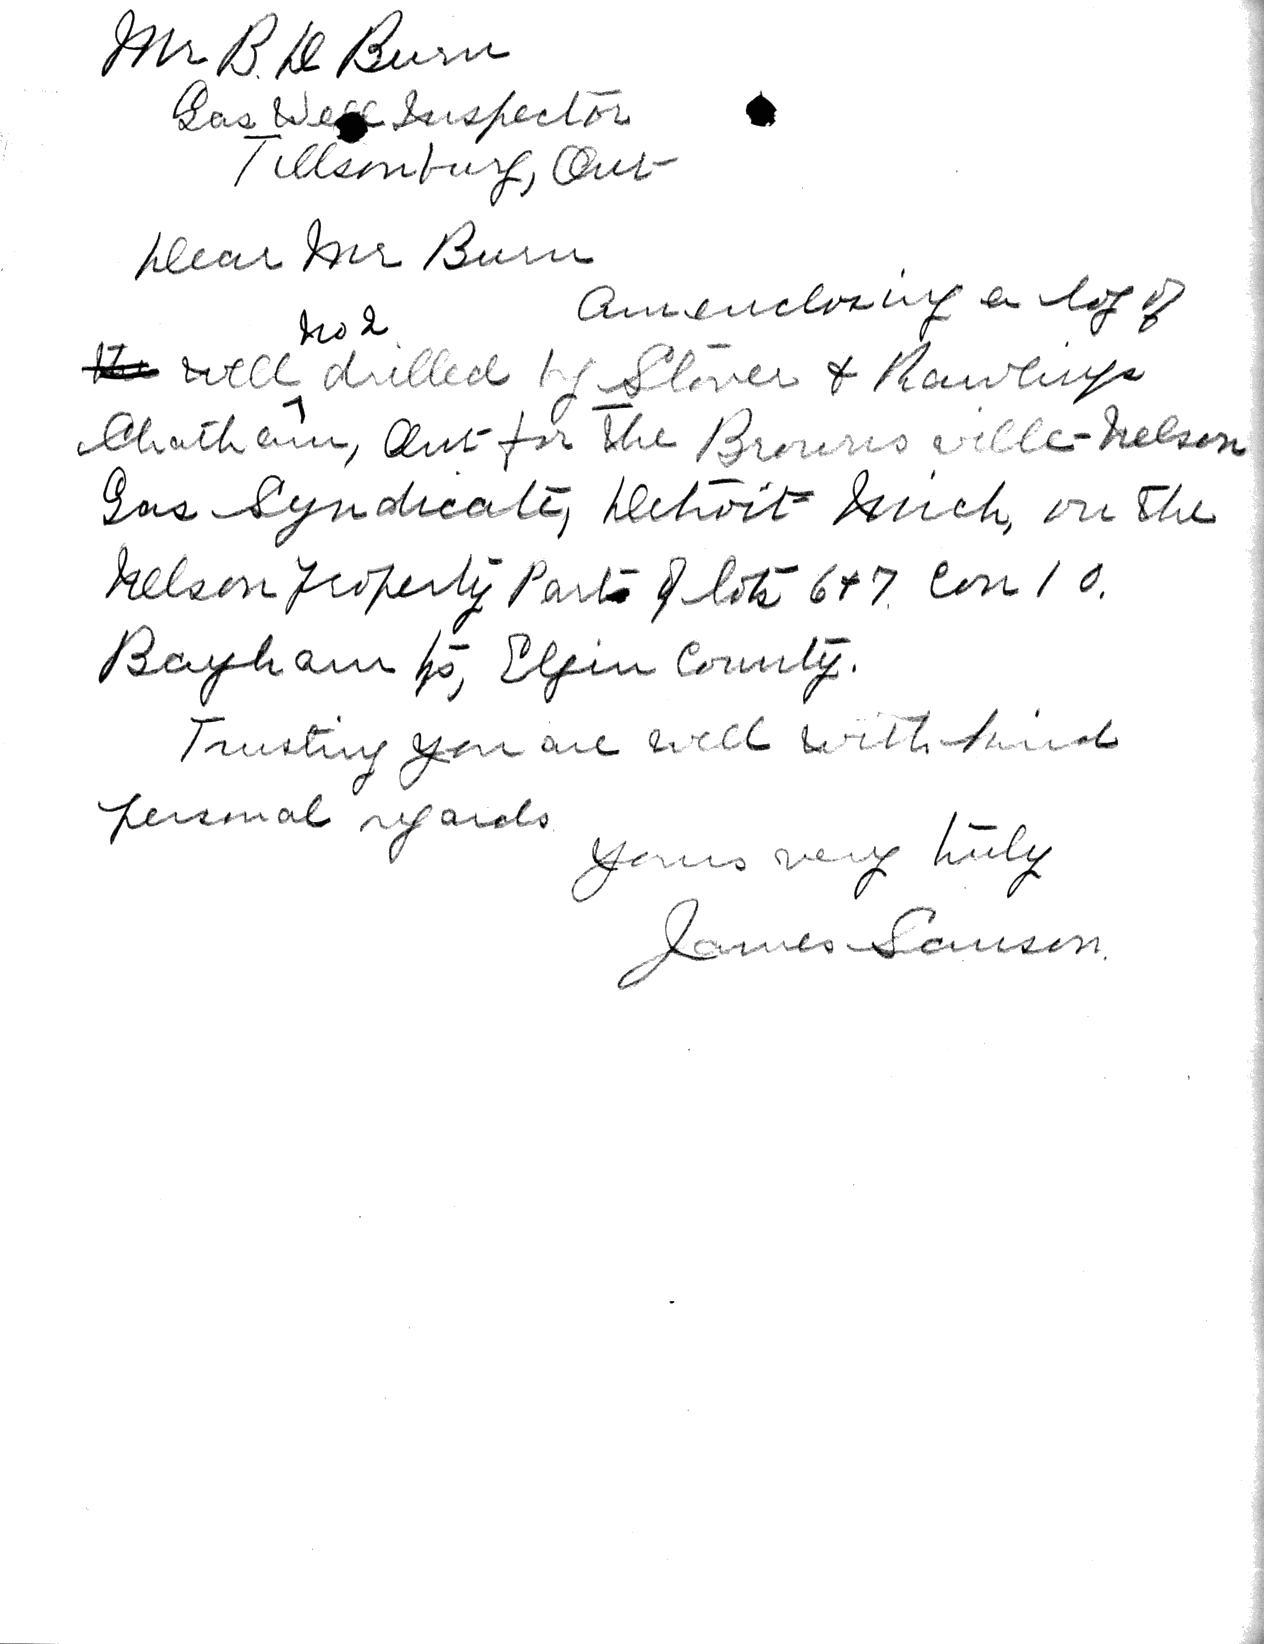 Mr B. D Burn
Gas Well Inspector
Tillsonburg, Ont
Dear Mr Burn
Am enclosing a log of
the well No 2 drilled by Stover & Rawlings
Chatham, Ont for the Brownsville-Nelson
Gas Syndicate, Detroit Mich, on the
Nelson property Parts of lots 6+7. Con 10.
Bayham Tp, Elgin County.
Trusting you are well with kind
personal regards
Yours very truly
James Samson.